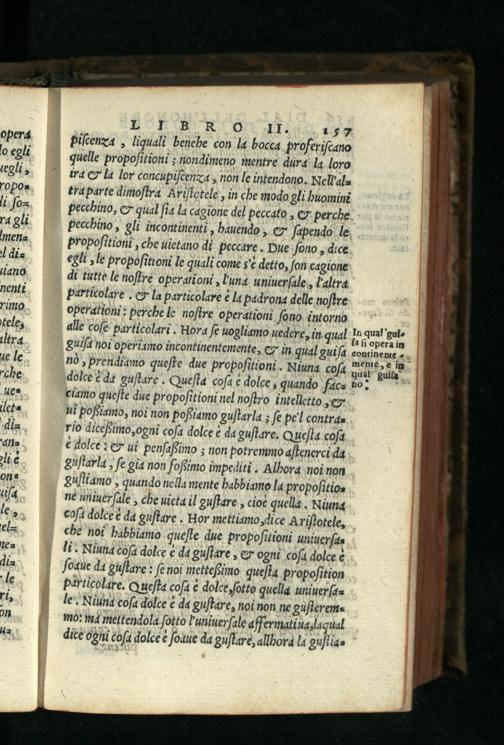 opera
lo egli
uegli,
ropo=
li so=
ra gli
lmen=
el di=
utano
nenti
rimo
otele,
altra
ue le
rche
ue=
ilet=
di=
ran=
gli è
on=
uisa
le,
uel=
ne=
di=
r le
ri,
on
u=
LIBRO II. 157
piscenza, liquali benehe con la bocca proferiscano
quelle propositioni; nondimeno mentre dura la loro
ira & la lor concupiscenza, non le intendono. Nell'al=
tra parte dimostra Aristotele, in che modo gli huomini
pecchino, & qual sia la cagione del peccato, & perche
pecchino, gli incontinenti, hauendo, & sapendo le
propositioni, che uietano di peccare. Due sono, dice
egli, le propositioni le quali come s'è detto, son cagione
di tutte le nostre operationi, l'una uniuersale, l'altra
particolare. & la particolare è la padrona delle nostre
operationi: perche le nostre operationi sono intorno
alle cose particolari. Hora se uogliamo uedere, in qual
guisa noi operiamo incontinentemente, & in qual guisa
nò, prendiamo queste due propositioni. Niuna cosa
dolce è da gustare. Questa cosa è dolce, quando fac=
ciamo queste due propositioni nel nostro intelletto, &
ui poßiamo, noi non poßiamo gustarla; se pe'l contra=
rio diceßimo, ogni cosa dolce è da gustare. Questa cosa
è dolce: & ui pensaßimo; non potremmo astenerci da
gustarla, se gia non foßimo impediti. Alhora noi non
gustiamo, quando nella mente habbiamo la propositio=
ne uniuersale, che uieta il gustare, cioè quella. Niuna
cosa dolce è da gustare. Hor mettiamo, dice Aristotele,
che noi habbiamo queste due propositioni uniuersa=
li. Niuna cosa dolce è da gustare, & ogni cosa dolce è
soaue da gustare: se noi metteßimo questa proposition
particolare. Questa cosa è dolce, sotto quella uniuersa=
le. Niuna cosa dolce è da gustare, noi non ne gusterem=
mo: ma mettendola sotto l'uniuersale affermatiua, laqual
dice ogni cosa dolce è soaue da gustare, allhora la gustia=
In qual gui=
sa si opera in
continente =
mente, e in
qual guisa
no: